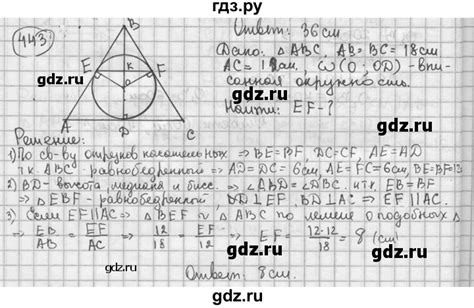 гдз.ру
443
Ответ: 36 см
Дано: △ABC, AB = BC = 18 см
AC = 12 см, ω(O; OD) - впи-
санная окружность.
Найти: EF - ?
B
E K F
O
A D C
Решение:
1) По св-ву отрезков касательных ⇒ BE=BF, DC=CF, AE=AD
т.к. ABC - равнобедренный ⇒ AD=DC= 6см, AE=FC=6см, BE=BF=12
2) BD - высота, медиана и бисс. ⇒ ∠ABD = ∠DBC. и т.к. EB = BF ⇒
⇒ △EBF - равнобедренный, BD⊥EF, BD⊥AC ⇒ EF||AC
3) Если EF||AC ⇒ △BEF ~ △ABC по лемме о подобных △
⇒ EB/AB = EF/AC ⇒ 12/18 = EF/12 ⇒ EF = 12·12/18 = 8 (см)
Ответ: 8 см.
gdz.ru